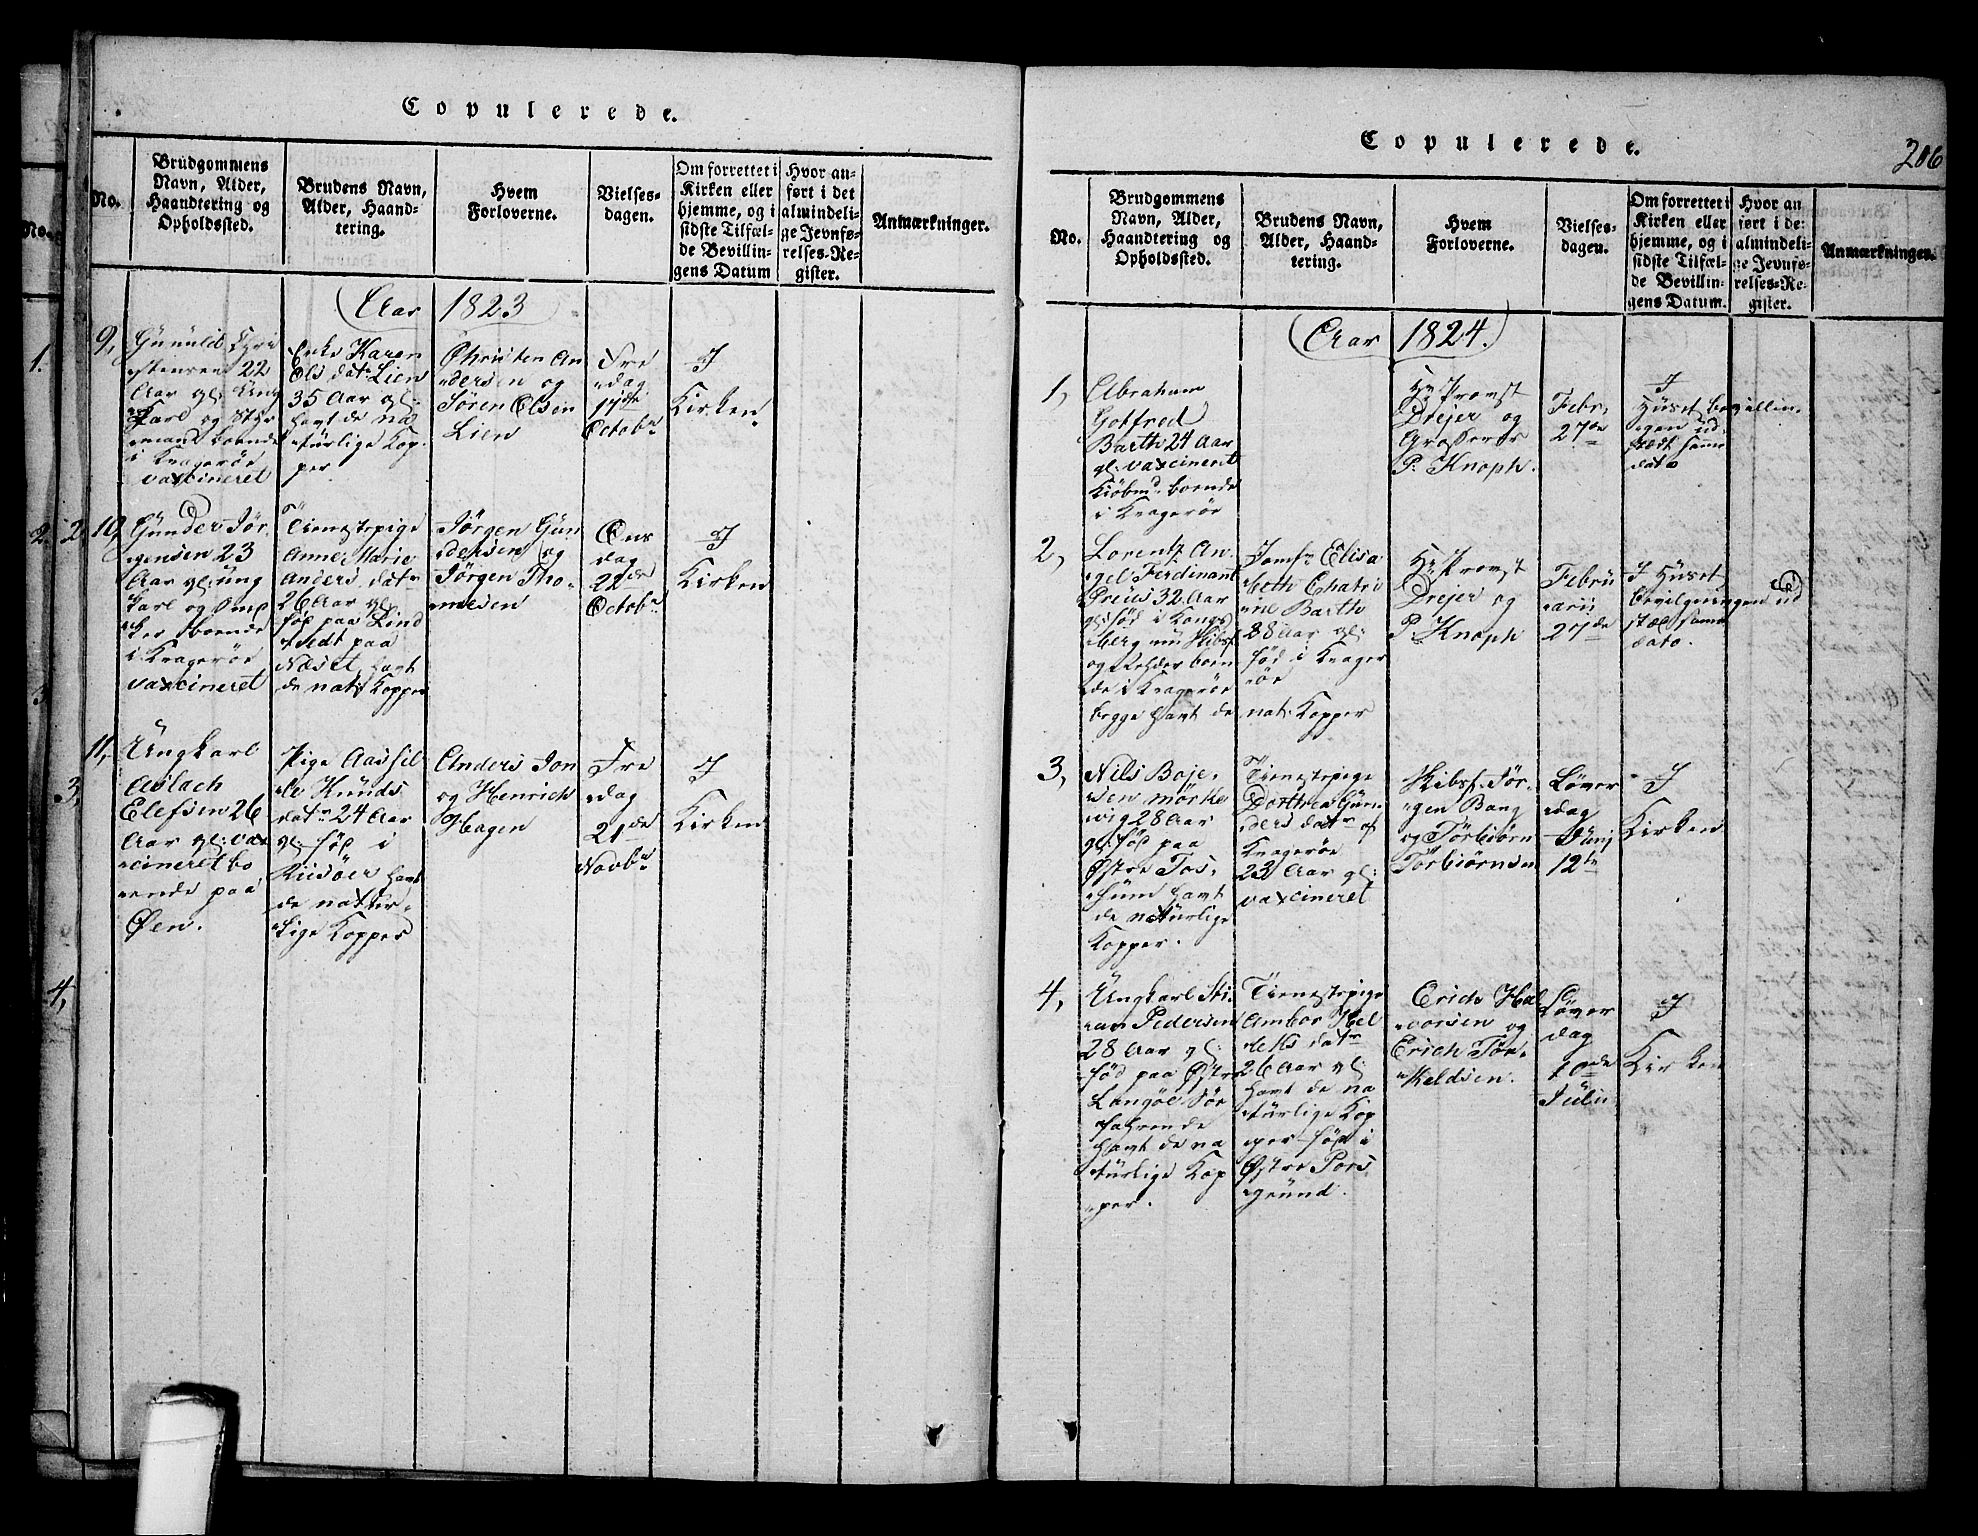 Copulerede.
No.
Brudgommens
Navn, Alder,
Haandtering og
Opholdssted.
Brudens Navn,
Alder, Haand-
tering.
Hvem
Forloverne.
Vielses-
dagen.
Om forrettet i
Kirken eller
hjemme, og i
sidste Tilfæl-
de Bevillin-
gens Datum
Hvor an-
ført i det
almindeli-
ge Jevnfø-
relses-Re-
gister.
Anmærkninger.
Aar 1823
9,
Aar gl: Ung
Karl og Styr
mand boende
i Kragerøe
vaxcineret
Enke Karen
Ols dat: Lien
35 Aar gl:
havt de na
türlige Kop
per
Christen An
dersen og
Søren Olsen
Lien
Fre
dag
17de
Octobr
I
Kirken
10,
Gunder Jør
gensen 23
Aar gl: ung
karl og
boende
i Kragerøe
vaxcineret
Tienestepige
Anne Marie
Anders datr
26 Aar gl:
fød paa Lind
tvedt paa
Næset havt
de nat: Kopper
Jørgen Gun
dersen og
Jørgen Tho-
mesen
Ons
dag
22de
Octobr
I
Kirken
11,
Ungkarl
Aslach
Elefsen 26
Aar gl: vax
cineret bo
ende paa
Øen.
Pige Aassil
de Knuds
datr 24 Aar
gl: fød i
Riisøer havt
de natur-
lige Kopper
Anders Jon
og Henrich
Hagen
Fre
dag
21de
Novbr
I
Kirken
Copulerede.
206
No.
Brudgommens
Navn, Alder,
Haandtering og
Opholdssted.
Brudens Navn,
Alder, Haand-
tering.
Hvem
Forloverne.
Vielses-
dagen.
Om forrettet i
Kirken eller
hjemme, og i
sidste Tilfæl-
de Bevillin-
gens Datum.
Hvor an
ført i de:
almindeli-
ge Jevnfø-
relses-Re-
gister.
Anmærkninger.
Aar 1824.
1,
Abraham
Gotfred
Barth 24 Aar
gl: vaxcineret
Kiöbmd boende
i Kragerøe
Hr Provst
Drejer og
Grosserer
P. Knoph.
Febr.
27de
I
Huset bevillin
gen ud
stædt samme
dato
2,
Lorentz An
gel Ferdinant
Preus 32 Aar
gl: fød i Kongs
berg nu Skibsf
og Reder boen
de i Kragerøe
begge havt de
Jomfr Elisa
beth Chatri
ne Barth
28 Aar gl:
fød i Krager
øe
nat: Kopper
Hr Provst
Drejer og
P. Knoph
Febru
arii
27de
I Huset
bevilgningen ud
sted samme
dato.
3,
Nils Boje
sen Mörke
wig 28 Aar
gl: fød paa
Østre Tos
hüm havt
de natürlige
Kopper.
Tienestepige
Dorthea Gun
ders datr af
Kragerøe
23 Aar gl:
vaxcineret
Skibsf: Jør
gen Bang
og Torbiørn
Torbiørnsen
Løver
dag
Junj
12te
I
Kirken
4,
Ungkarl Sti
an Pedersen
28 Aar gl:
fød paa Østre
Langöe Sör
farende
havt de na
türlige Kop
per.
Tienestepige
Ambor Kel
datr
26 Aar gl:
havt de na
türlige Kop
per fød i
Østre Pors
gründ.
Erich Hal
vorsen og
Erich Tor
keldsen.
Løver
dag
10de
Julii
I
Kirken